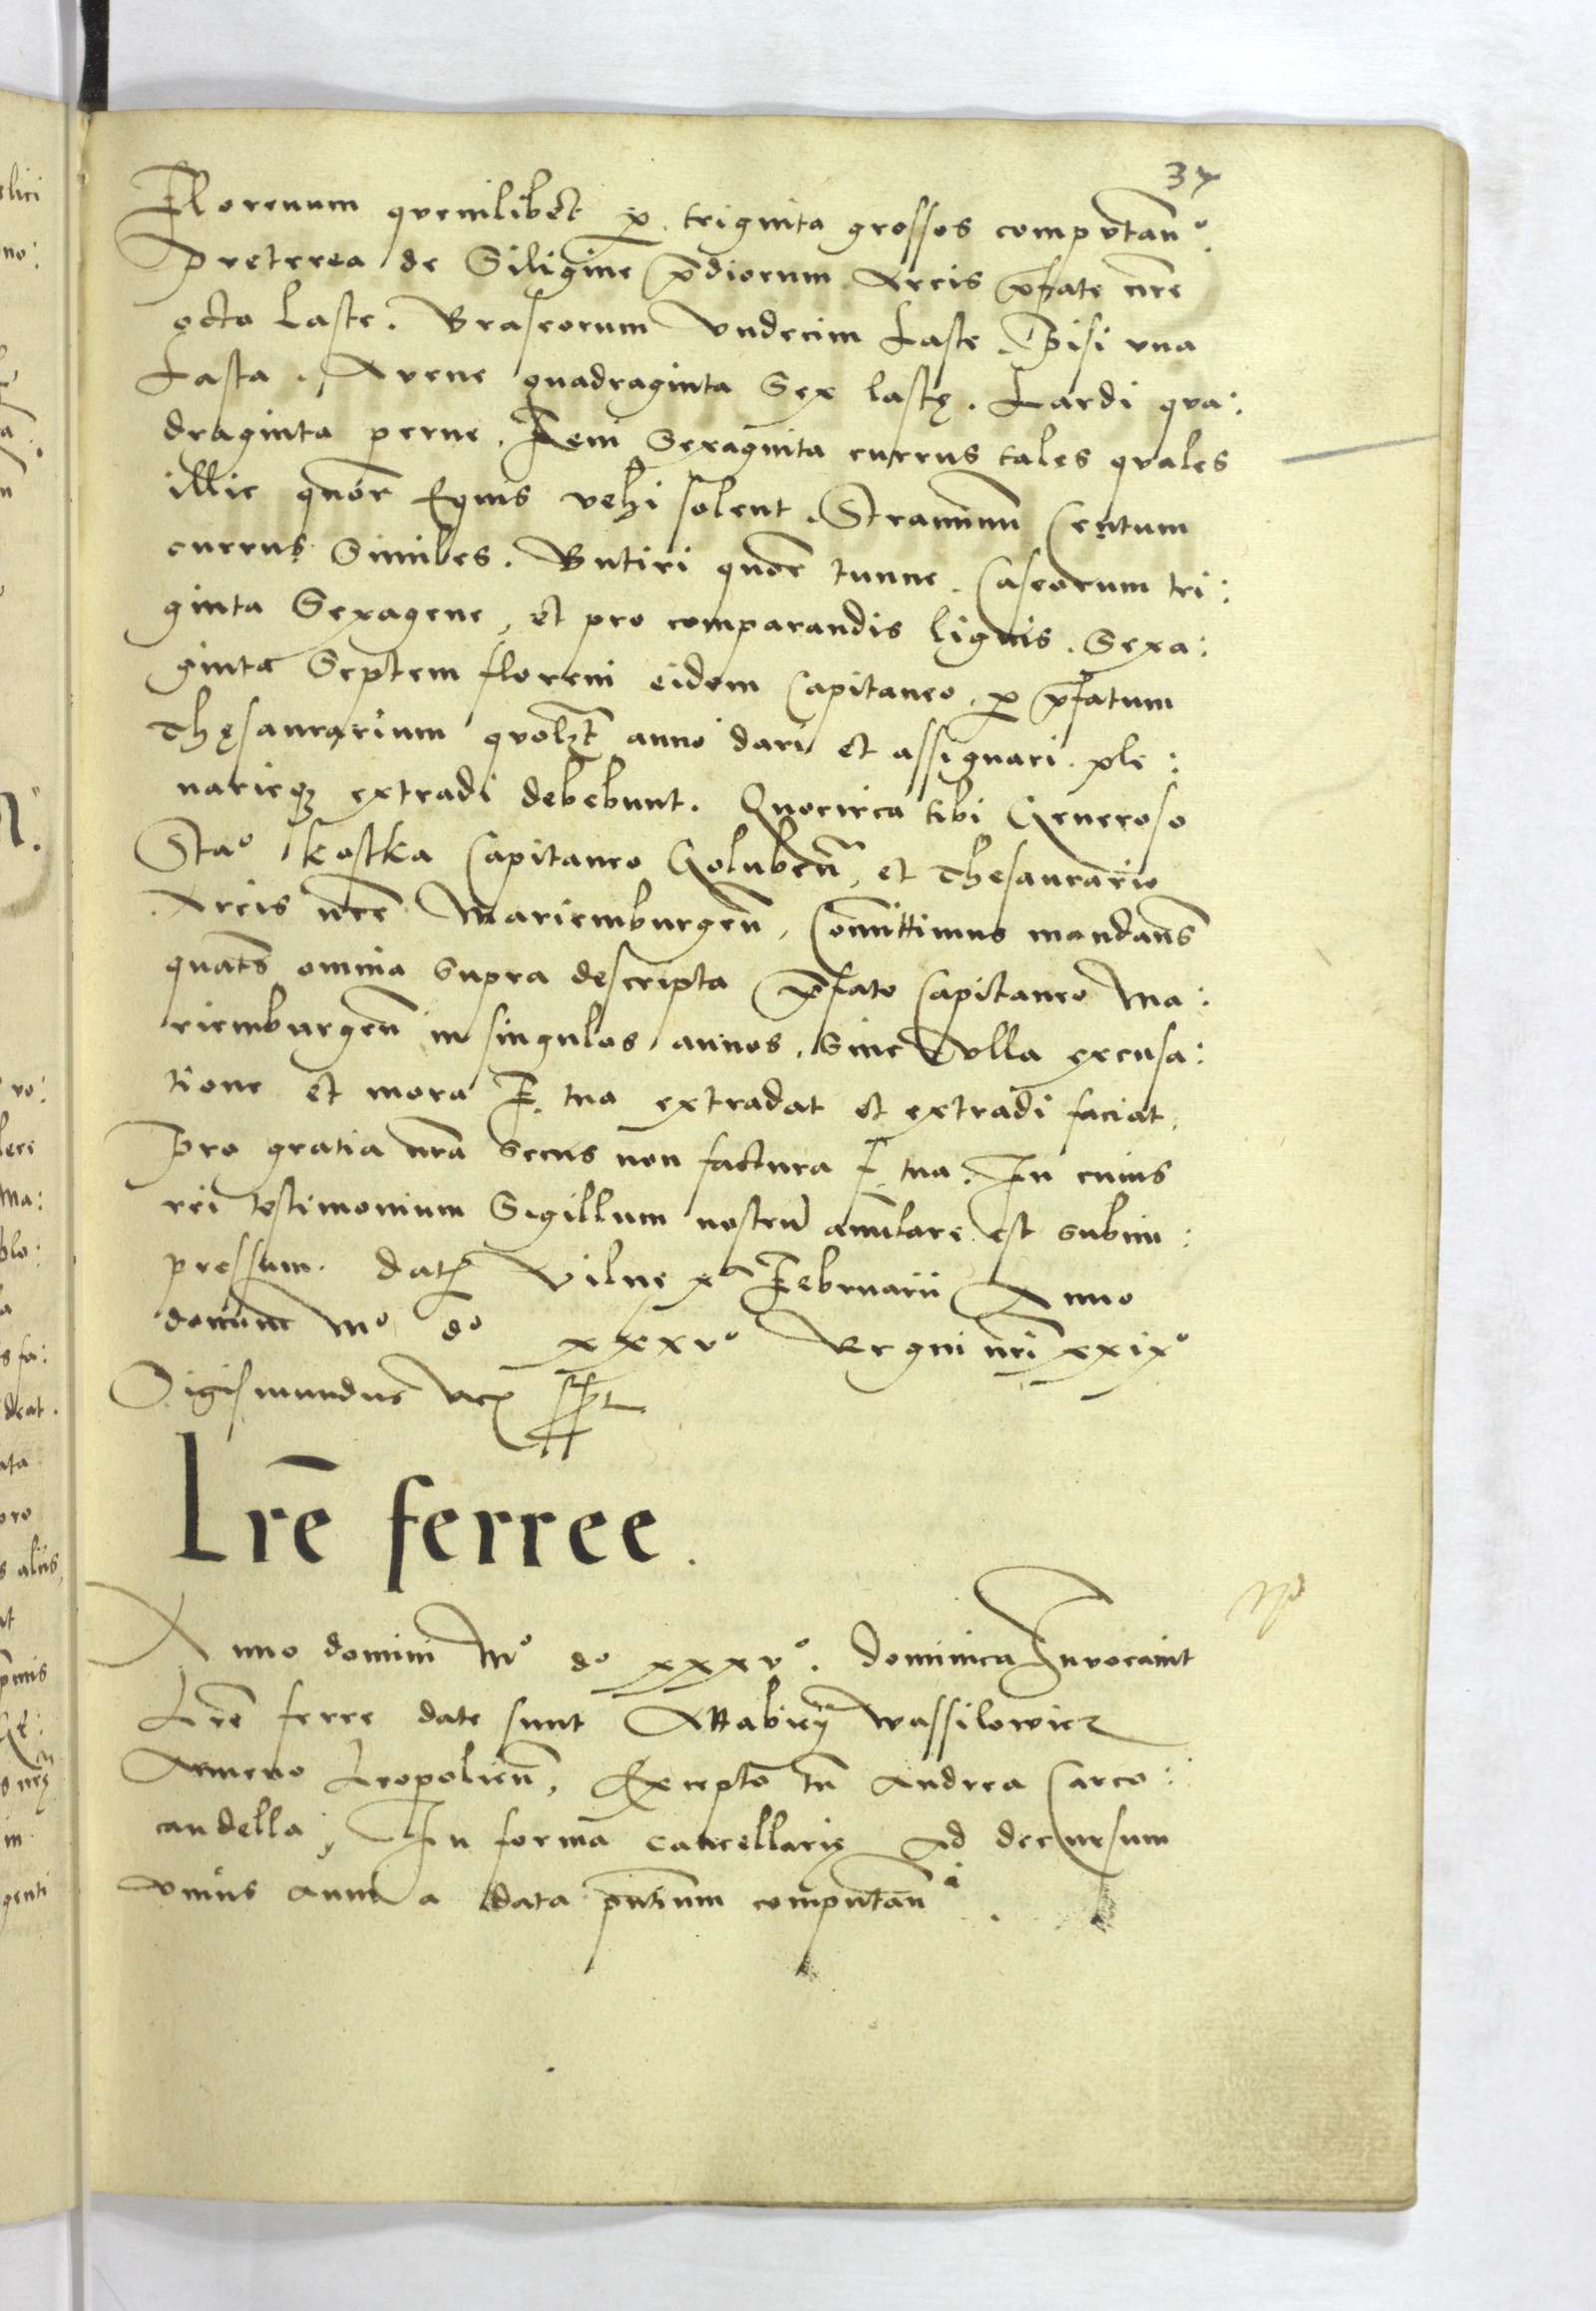 37
Florenum quemlibet p. triginta grossos computan°.
Preterea de Siligine p̄diorum Arcis p̄fate nr̄e
octo Laste. Braseorum Undecim Laste. Pisi una
Lasta. Avene quadraginta Sex lastę. Lardi qua:
draginta perne. Feni Sexaginta currus tales quales
illic quor̄ Equis vehi solent. Straminū Centum
currus Similes. Butiri quor̄ tunne. Caseorum tri:
ginta Sexagene, et pro comparandis lignis. Sexa:
ginta Septem floreni eidem Capitaneo, p p̄fatum
Thęsaurarium quolꝫt anno dari et assignari. ple:
narieqꝫ extradi debebunt. Quocirca tibi Generoso
Sta° kostka Capitaneo Golubeñ, et Thesaurario
Arcis nr̄e Mariemburgeñ, Com̄ittimus mandan̄s
quat̄s omnia supra descripta p̄fato Capitaneo Ma:
riemburgeñ in singulos annos. Sine ulla excusa:
tione et mora F. tua extradat et extradi faciat.
Pro gratia nr̄a secus non factura F. tua. In cuius
rei testimonium Sigillum nostrū anulare est subim:
pressum. Dat Vilne xᵃ Februarii Anno
domini M° d° xxxv° Regni nr̄i xxix°
Sigismundus Rex sst
Lr̄e ferree.
Anno domini M° d° xxxv°. Dominica Invocavit
Lr̄e ferre date sunt Attabiey Wassilowicz
Armeno Leopolieñ, Excepto tn̄ Andrea Carco:
candella, In forma cancellarię Ad decursum
unius anni a data p̄ntium computan̄